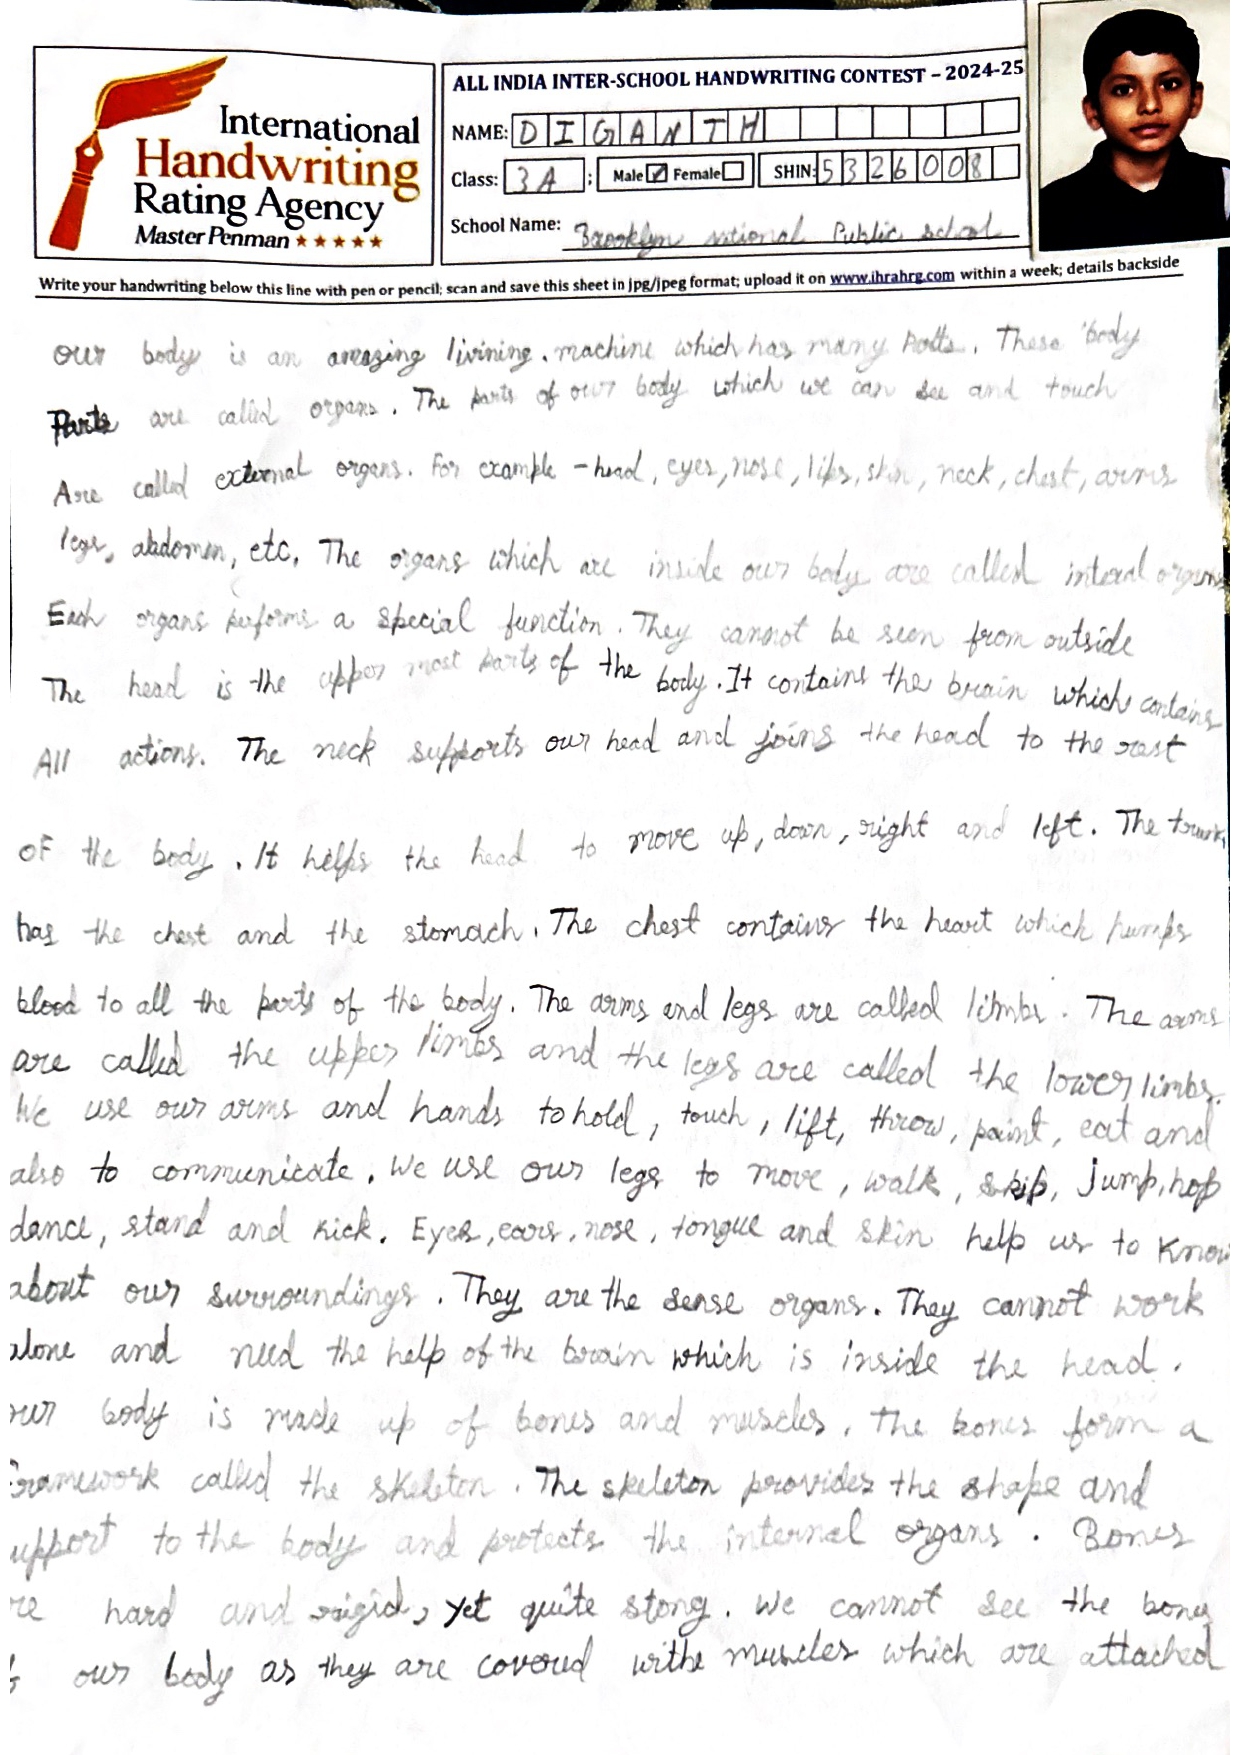 International
Handwriting
Rating Agency
Master Penman ★★★★★
ALL INDIA INTER-SCHOOL HANDWRITING CONTEST – 2024-25
NAME: DIGANTH
Class: 3A ; Male ☑ Female ☐ SHIN: 5326008
School Name: Brooklyn national Public school
Write your handwriting below this line with pen or pencil; scan and save this sheet in jpg/jpeg format; upload it on www.ihrahrg.com within a week; details backside
our body is an amazing livining . machine which has many . These body
Parts are called organs. The parts of our body which we can see and touch
Are called external organs. For example - head, eyes, nose, lips, skin, neck, chest, arms
legs, abdomen, etc. The organs which are inside our body are called interal organs
Each organs performs a special function. They cannot be seen from outside
The head is the upper most parts of the body. It contains the brain which contains
All actions. The neck supports our head and joins the head to the rest
of the body . It helps the head to move up, down, right and left. The trunk
has the chest and the stomach. The chest contains the heart which pumps
blood to all the parts of the body. The arms and legs are called limbs. The arms
are called the upper limbs and the legs are called the lower limbs.
We use our arms and hands to hold, touch, lift, throw, paint, eat and
also to communicate. We use our legs to move, walk, skip, jump, hop
dance, stand and kick. Eyes, ears, nose, tongue and skin help us to know
about our surroundings. They are the sense organs. They cannot work
alone and need the help of the brain which is inside the head.
our body is made up of bones and muscles. The bones form a
framework called the skeleton. The skeleton provides the shape and
upport to the body and protects the internal organs. Bones
re hard and rigid, yet quite stong. We cannot see the bones
our body as they are covered withe muscles which are attached